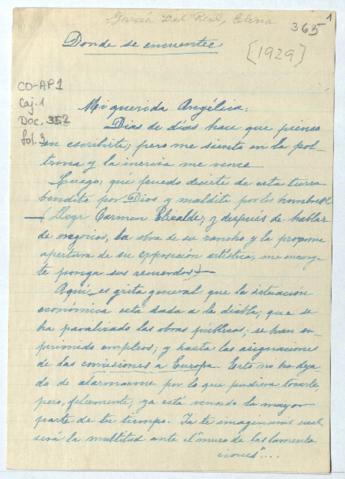 García Del Real, Elena
365
1
Donde se encuentre
[1929]
CD-AP1
Caj. 1
Doc. 352
fol. 3
Mi querida Angélica:
Días de días hace que pienso
en escribirte; pero me siento en la pol-
trona y la inercia me vence
Luego, qué puedo decirte de esta tierra
bendita por Dios y maldita por los hombres!
Llegó Carmen Elcalde, y después de hablar
de negocios, la obra de su rancho y la próxima
apertura de su exposición artística, me encar-
ga ponga sus recuerdos
Aquí, es grita general que la situación
económica está dada a la diabla; que se
ha paralizado las obras públicas; se han su-
primido empleos, y hasta las asignaciones
de las comisiones a Europa. Esto no ha deja
do de alarmarme por lo que pudiera tocarte
pero, felizmente, ya está vencido la mayor
parte de tu tiempo. Ya te imaginarás cuál
será la multitud ante el "muro de las lamenta
ciones"....